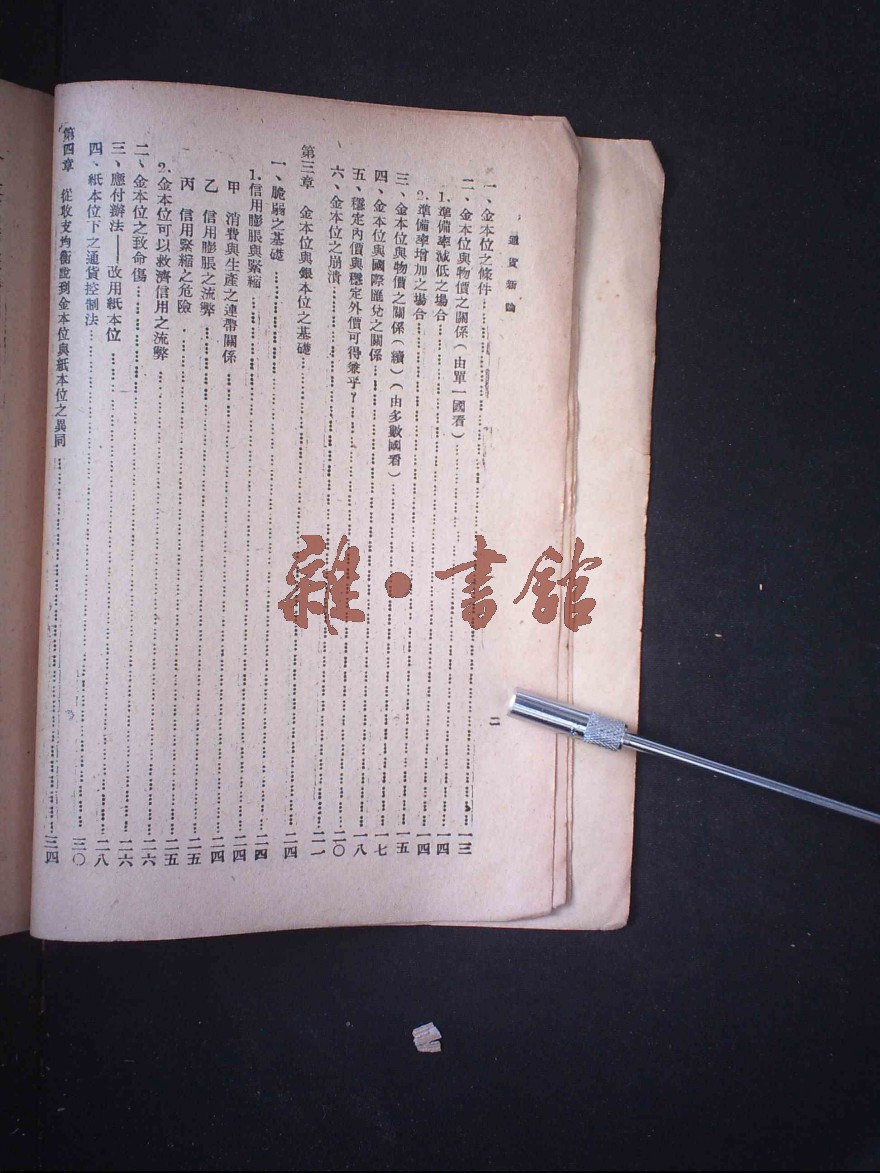 通貨新論
二
一、金本位之條件……一三
二、金本位與物價之關係（由單一國看）……一四
1.準備率減低之場合……一四
2.準備率增加之場合……一五
三、金本位與物價之關係（續）（由多數國看）……一七
四、金本位與國際匯兌之關係……一八
五、穩定內價與穩定外價可得兼乎？……二〇
六、金本位之崩潰……二一
第三章　金本位與銀本位之基礎……二四
一、脆弱之基礎……二四
1.信用膨脹與緊縮……二四
甲　消費與生產之連帶關係……二四
乙　信用膨脹之流弊……二五
丙　信用緊縮之危險……二五
2.金本位可以救濟信用之流弊……二六
二、金本位之致命傷……二六
三、應付辦法——改用紙本位……二八
四、紙本位下之通貨控制法……三〇
第四章　從收支均衡說到金本位與紙本位之異同……三四
雜·書館